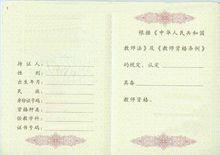 持证人
性别
出生年月
民族
身份证号码
资格种类
任教学科
证书号码
根据《中华人民共和国
教师法》及《教师资格条例》
的规定，认定
具备
教师资格。